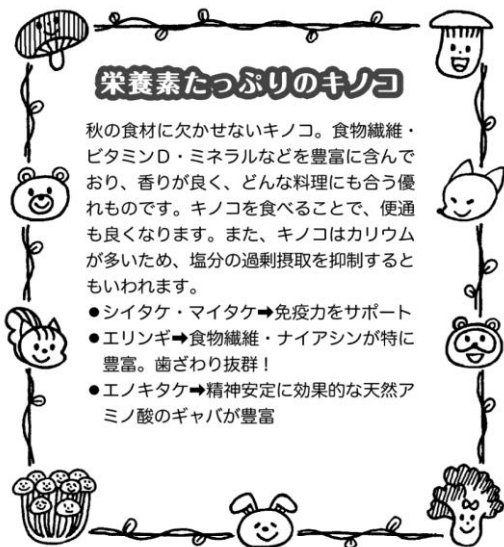 栄養素たっぷりのキノコ
秋の食材に欠かせないキノコ。食物繊維・
ビタミンD・ミネラルなどを豊富に含んで
おり、香りが良く、どんな料理にも合う優
れものです。キノコを食べることで、便通
も良くなります。また、キノコはカリウム
が多いため、塩分の過剰摂取を抑制すると
もいわれます。
●シイタケ・マイタケ➡免疫力をサポート
●エリンギ➡食物繊維・ナイアシンが特に
豊富。歯ざわり抜群！
●エノキタケ➡精神安定に効果的な天然ア
ミノ酸のギャバが豊富